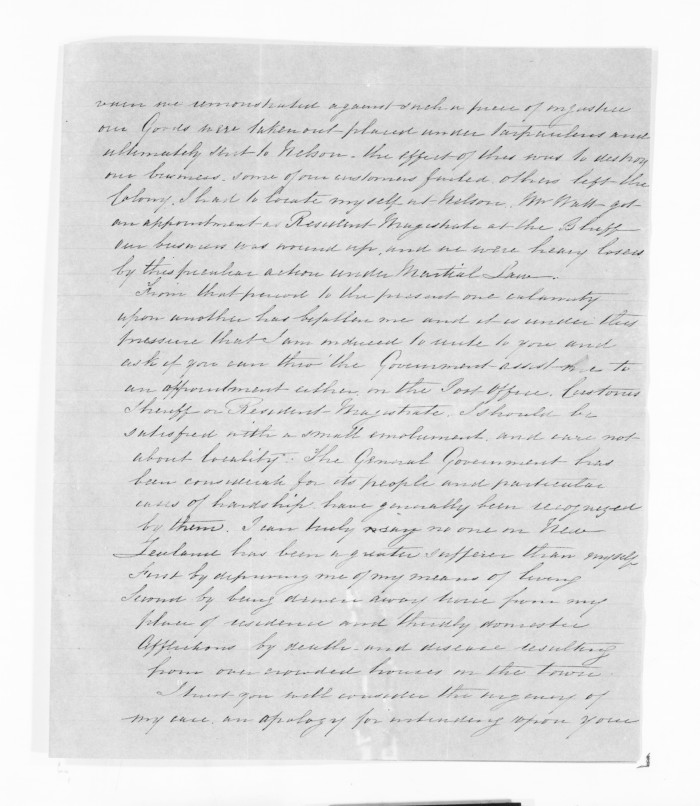 vain we remonstrated against such a piece of injustice
our Goods were taken out placed under tarpaulins and
ultimately sent to Nelson. the effect of this was to destroy
our business. some of our customers failed. others left the
Colony. I had to locate myself at Nelson. Mr Watt got
an appointment as Resident Magistrate at the Bluff
our business was wound up, and we were heavy losers
by this peculiar action under Martial Law.
From that period to the present one calamity
upon another has befallen me and it is under this
pressure that I am induced to write to you and
ask if you can thro' the Government assist me to
an appointment either in the Post Office. Customs
Sheriff or Resident Magistrate. I should be
satisfied with a small emolument. and care not
about locality. The General Government has
been considerate for its people and particular
cases of hardship have generally been recognized
by them. I can truly say no one in New
Zealand has been a greater sufferer than myself
First by depriving me of my means of living
Second by being driven away twice from my
place of residence and thirdly domestic
Afflictions by death and disease resulting
from over crowded houses in the town.
I trust you will consider the urgency of
my case. an apology for intending upon your